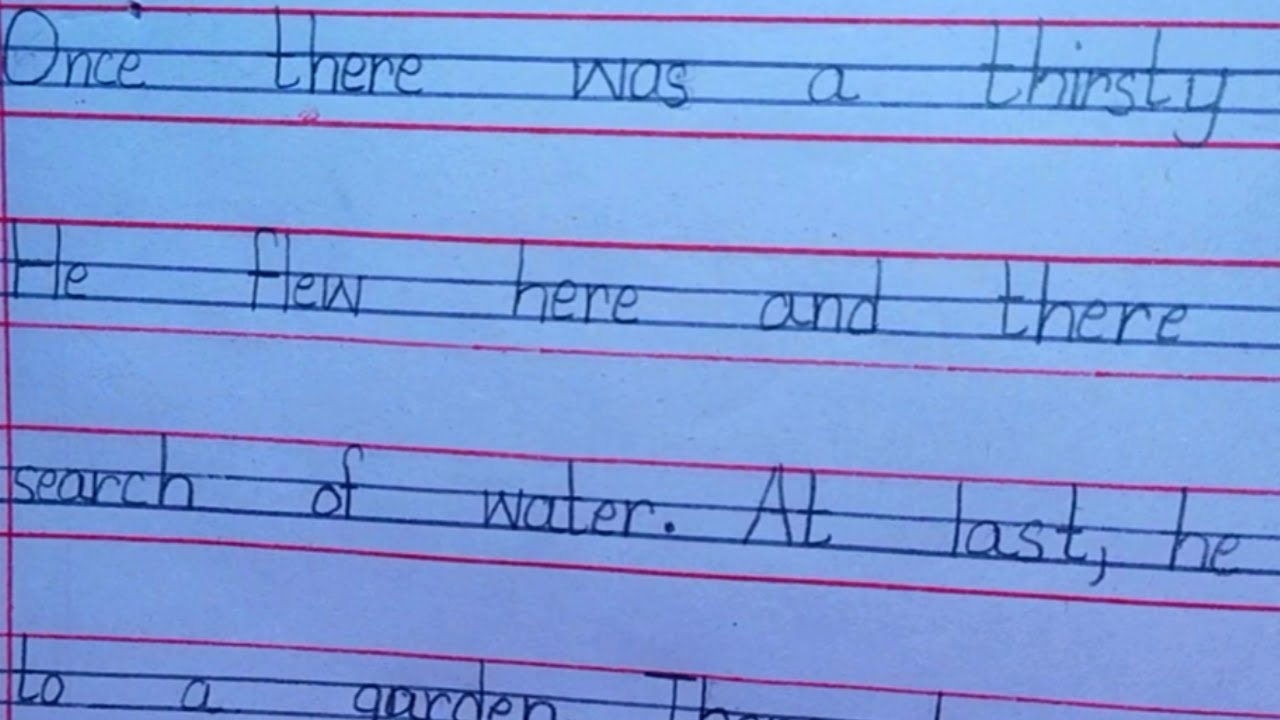 Once there was a thirsty
He flew here and there
search of water. At last, he
to a garden